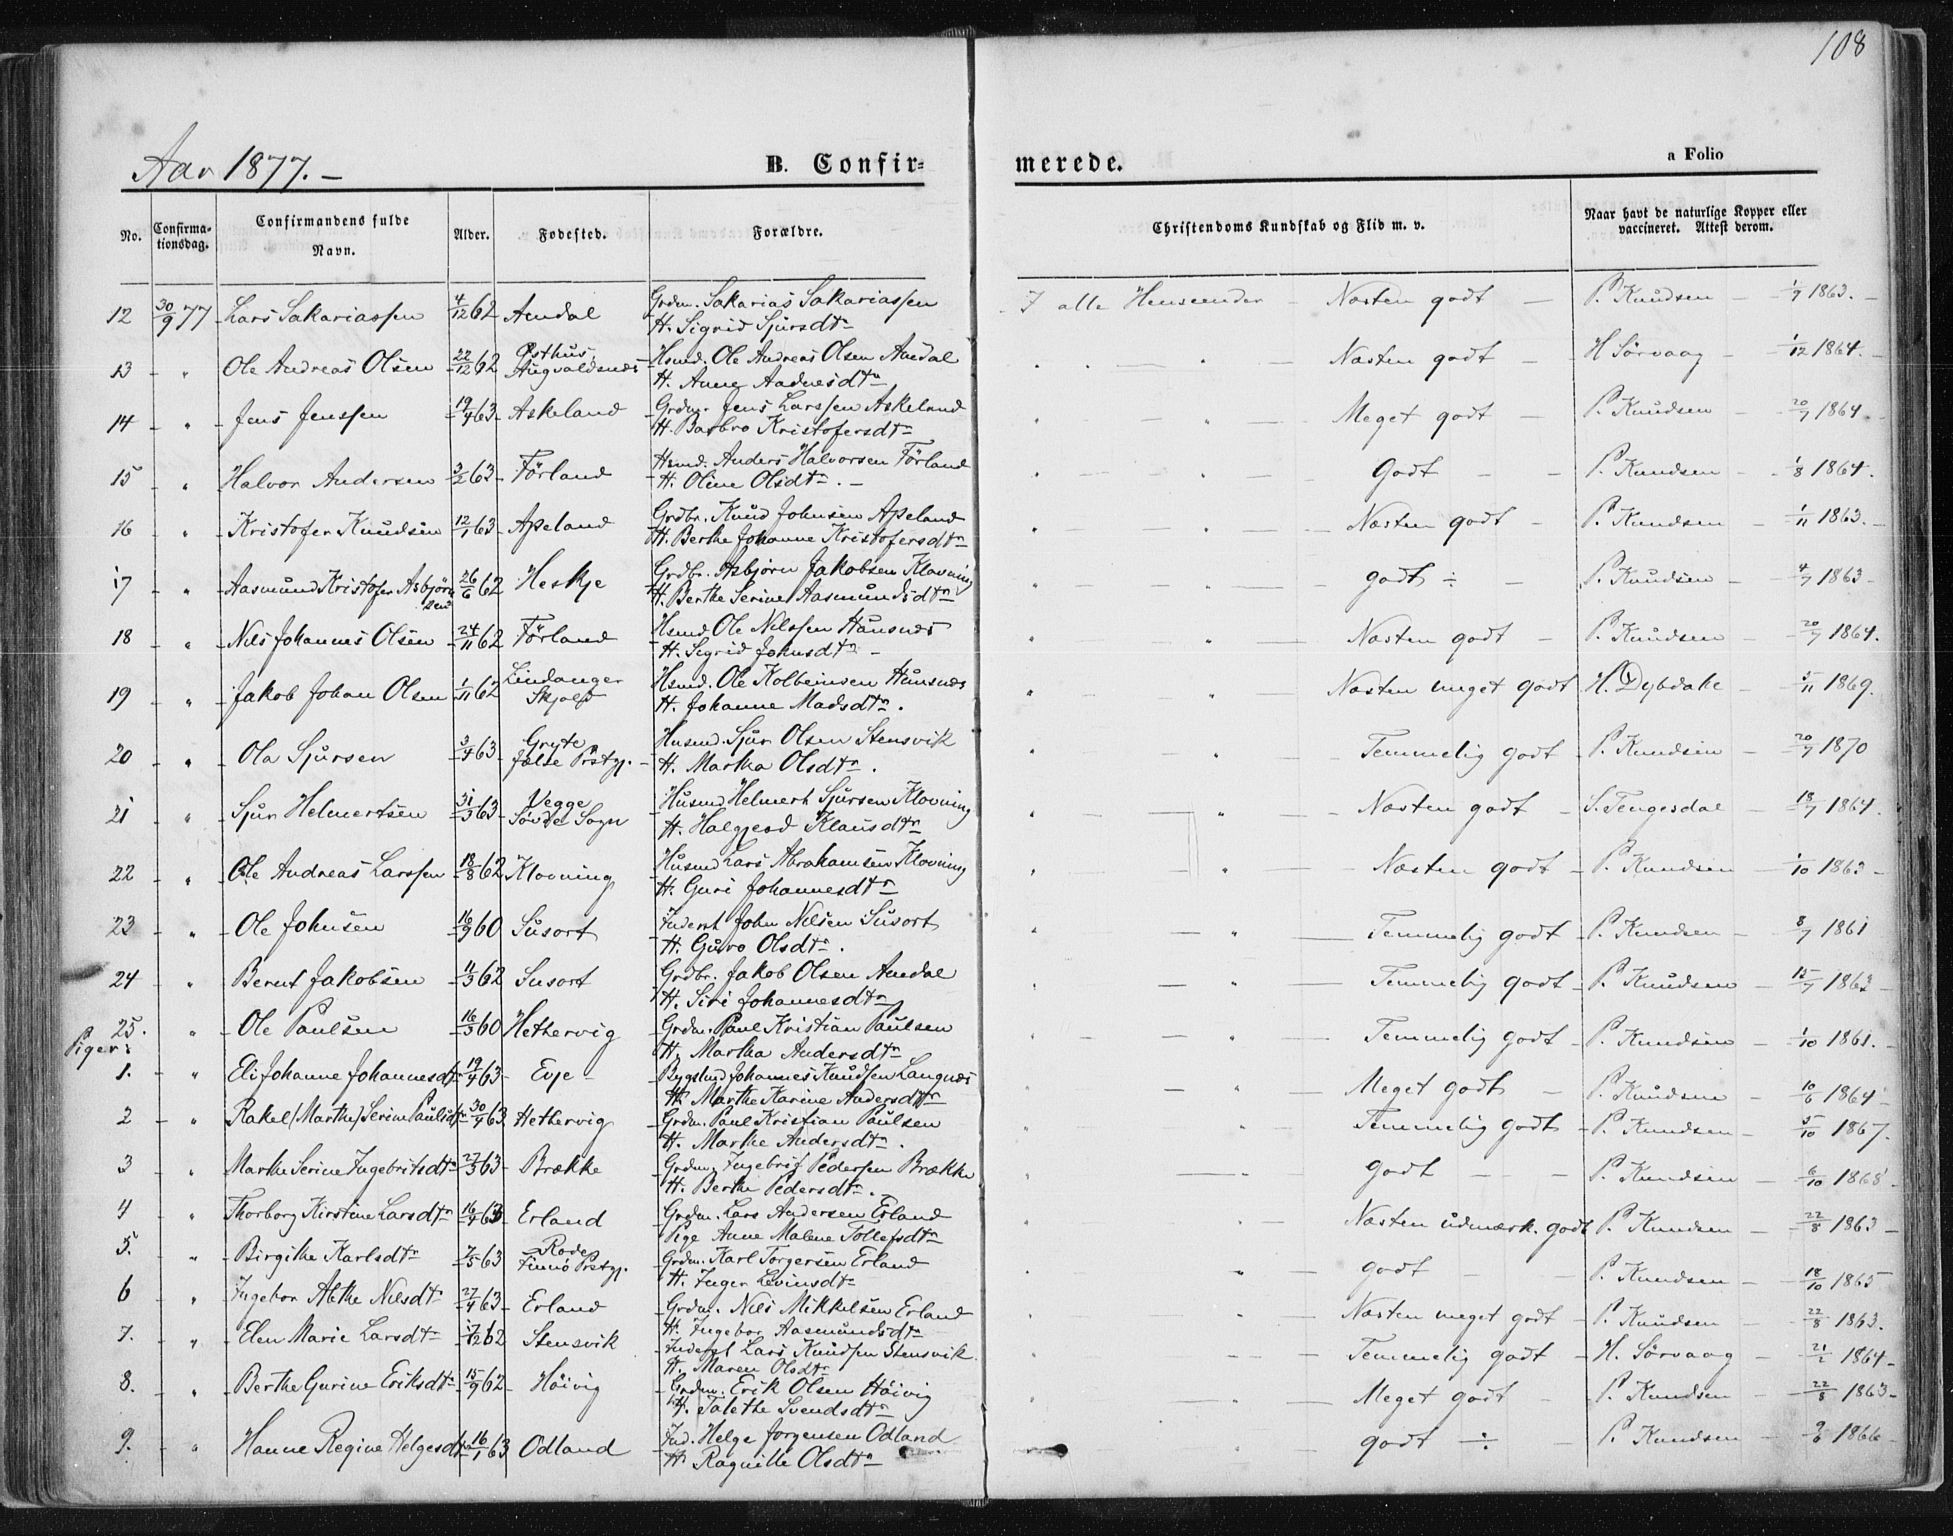 108
Aar 1877.-
B. Confir-
merede.
a Folio
No. Confirma-tionsdag. Confirmandens fulde Navn. Alder. Fødested. Forældre. Christendoms Kundskab og Flid m. v. Naar havt de naturlige Kopper eller vaccineret. Attest derom.
12 30/9 77 Lars Sakariassen 4/12 62 Amdal Grdm. Sakarias Sakariassen I alle Henseender - Næsten godt - P. Knudsen - 1/9 1863.
H. Sigrid Sjursdtr
13 " Ole Andreas Olsen 22/12 62 Østhus, Augvaldsnes Hsmd. Ole Andreas Olsen Amdal Næsten godt - H Sörvaag - 1/12 1864.
H. Anne Aadnesdtr
14 " Jens Jenssen 19/4 63 Askeland Grdm. Jens Larssen Askeland " Meget godt - P. Knudsen - 20/7 1864
H. Barbro Kristofersdtr
15 " Halvor Andersen 3/2 63 Förland Hsmd. Anders Halvorsen Förland " Godt - P. Knudsen - 1/8 1864.
H. Oline Olsdtr. -
16 " Kristofer Knudsen 12/1 63 Apeland Grdbr. Knud Johnsen Apeland " Næsten godt - P. Knudsen - 1/11 1863.
H. Berthe Johanne Kristofersdtr
17 " Aasmund Kristofer Asbjörnsen 26/6 62 Heskje Grdbr. Asbjørn Jakobsen Klovning " godt ÷ - P. Knudsen - 4/7 1863
H. Berthe Serine Aasmundsdtr
18 " Nils Johannes Olsen 24/11 62 Förland Hsmd Ole Nilssen Hausnes " Næsten godt - P. Knudsen - 20/7 1864.
H. Sigrid Johnsdtr -
19 " Jakob Johan Olsen 1/11 62 Lindanger Skjold Hsmd. Ole Kolbeinsen Hausnes " Næsten meget godt H. Dybdahl - 5/11 1869.
H. Johanne Madsdtr.
20 " Ola Sjursen 3/4 63 Gryte Prstgj. Husmd. Sjur Olsen Stensvik " Temmelig godt P. Knudsen - 20/7 1870
H. Martha Olsdtr.
21 " Sjur Helmertsen 31/3 63 Vegge Sövde Sogn Husmd Helmert Sjursen Klovning " Næsten godt - S. Tengesdal - 18/7 1864.
H. Halgjerd Klausdtr
22 " Ole Andreas Larssen 18/8 62 Klovning Husmd Lars Abrahamsen Klovning " Næsten godt - P. Knudsen - 1/10 1863
H. Guri Johannesdtr
23 " Ole Johnsen 16/9 60 Susort Inderst John Nilsen Susort " Temmelig godt - P. Knudsen - 8/7 1861
H. Guro Olsdtr.
24 " Bernt Jakobsen 11/3 62 Susort Grdbr. Jakob Olsen Amdal " Temmelig godt - P. Knudsen - 15/7 1863
H. Siri Johannesdtr
25. " Ole Paulsen 16/3 60 Hethervig Grdm. Paul Kristian Paulsen " Temmelig godt - P. Knudsen - 1/10 1861.
H. Martha Andersdtr
Piger:
1. " Eli Johanne Johannesdtr 19/4 63 Evje Bygslmd Johannes Knudsen Langnes " Meget godt - P. Knudsen - 10/6 1864
H. Marthe Karine Andersdtr
2 " Rakel (Marthe) Serine Paulsdtr 30/4 63 Hethervig Grdm. Paul Kristian Paulsen " Temmelig godt - P. Knudsen - 5/10 1867.
H. Marthe Andersdtr.
3 " Marthe Serine Ingebritsdtr 27/3 63 Brække Grdm. Ingebrit Pedersen Brække " godt - P. Knudsen - 6/10 1868
H. Berthe Pedersdtr.
4 " Thorborg Kirstine Larsdtr 16/4 63 Erland Grdm. Lars Andersen Erland " Næsten udmærk. godt P. Knudsen - 22/8 1863
Pige Anne Malene Tollefsdtr
5. " Birgithe Karlsdtr 7/5 63 Rode Finnö Prstgj. Grdm. Karl Torgersen Erland " godt - P. Knudsen - 18/10 1865
H. Inger Levinsdtr
6 " Ingebor Abthe Nilsdtr 27/4 63 Erland Grdm. Nils Mikkelsen Erland " Næsten meget godt - P. Knudsen - 22/8 1863.
H. Ingebor Aasmundsdtr
7. " Elen Marie Larsdtr 17/12 62 Stensvik Inderst Lars Knudsen Stensvik " Temmelig godt - H. Sörvaag - 21/2 1864
H. Maren Olsdtr
8. " Berthe Gurine Eriksdtr 15/9 62 Höivig Grdm. Erik Olsen Höivig " Meget godt - P. Knudsen - 22/8 1863
H. Talethe Svendsdtr
9. " Hanne Regine Helgesdtr 16/1 63 Odland Ind. Helge Jorgensen Odland " godt ÷ - P. Knudsen - 1866
H. Ragnille Olsdtr